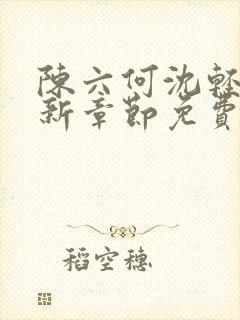 陳六何沈輕
新章節免費
稻空穗